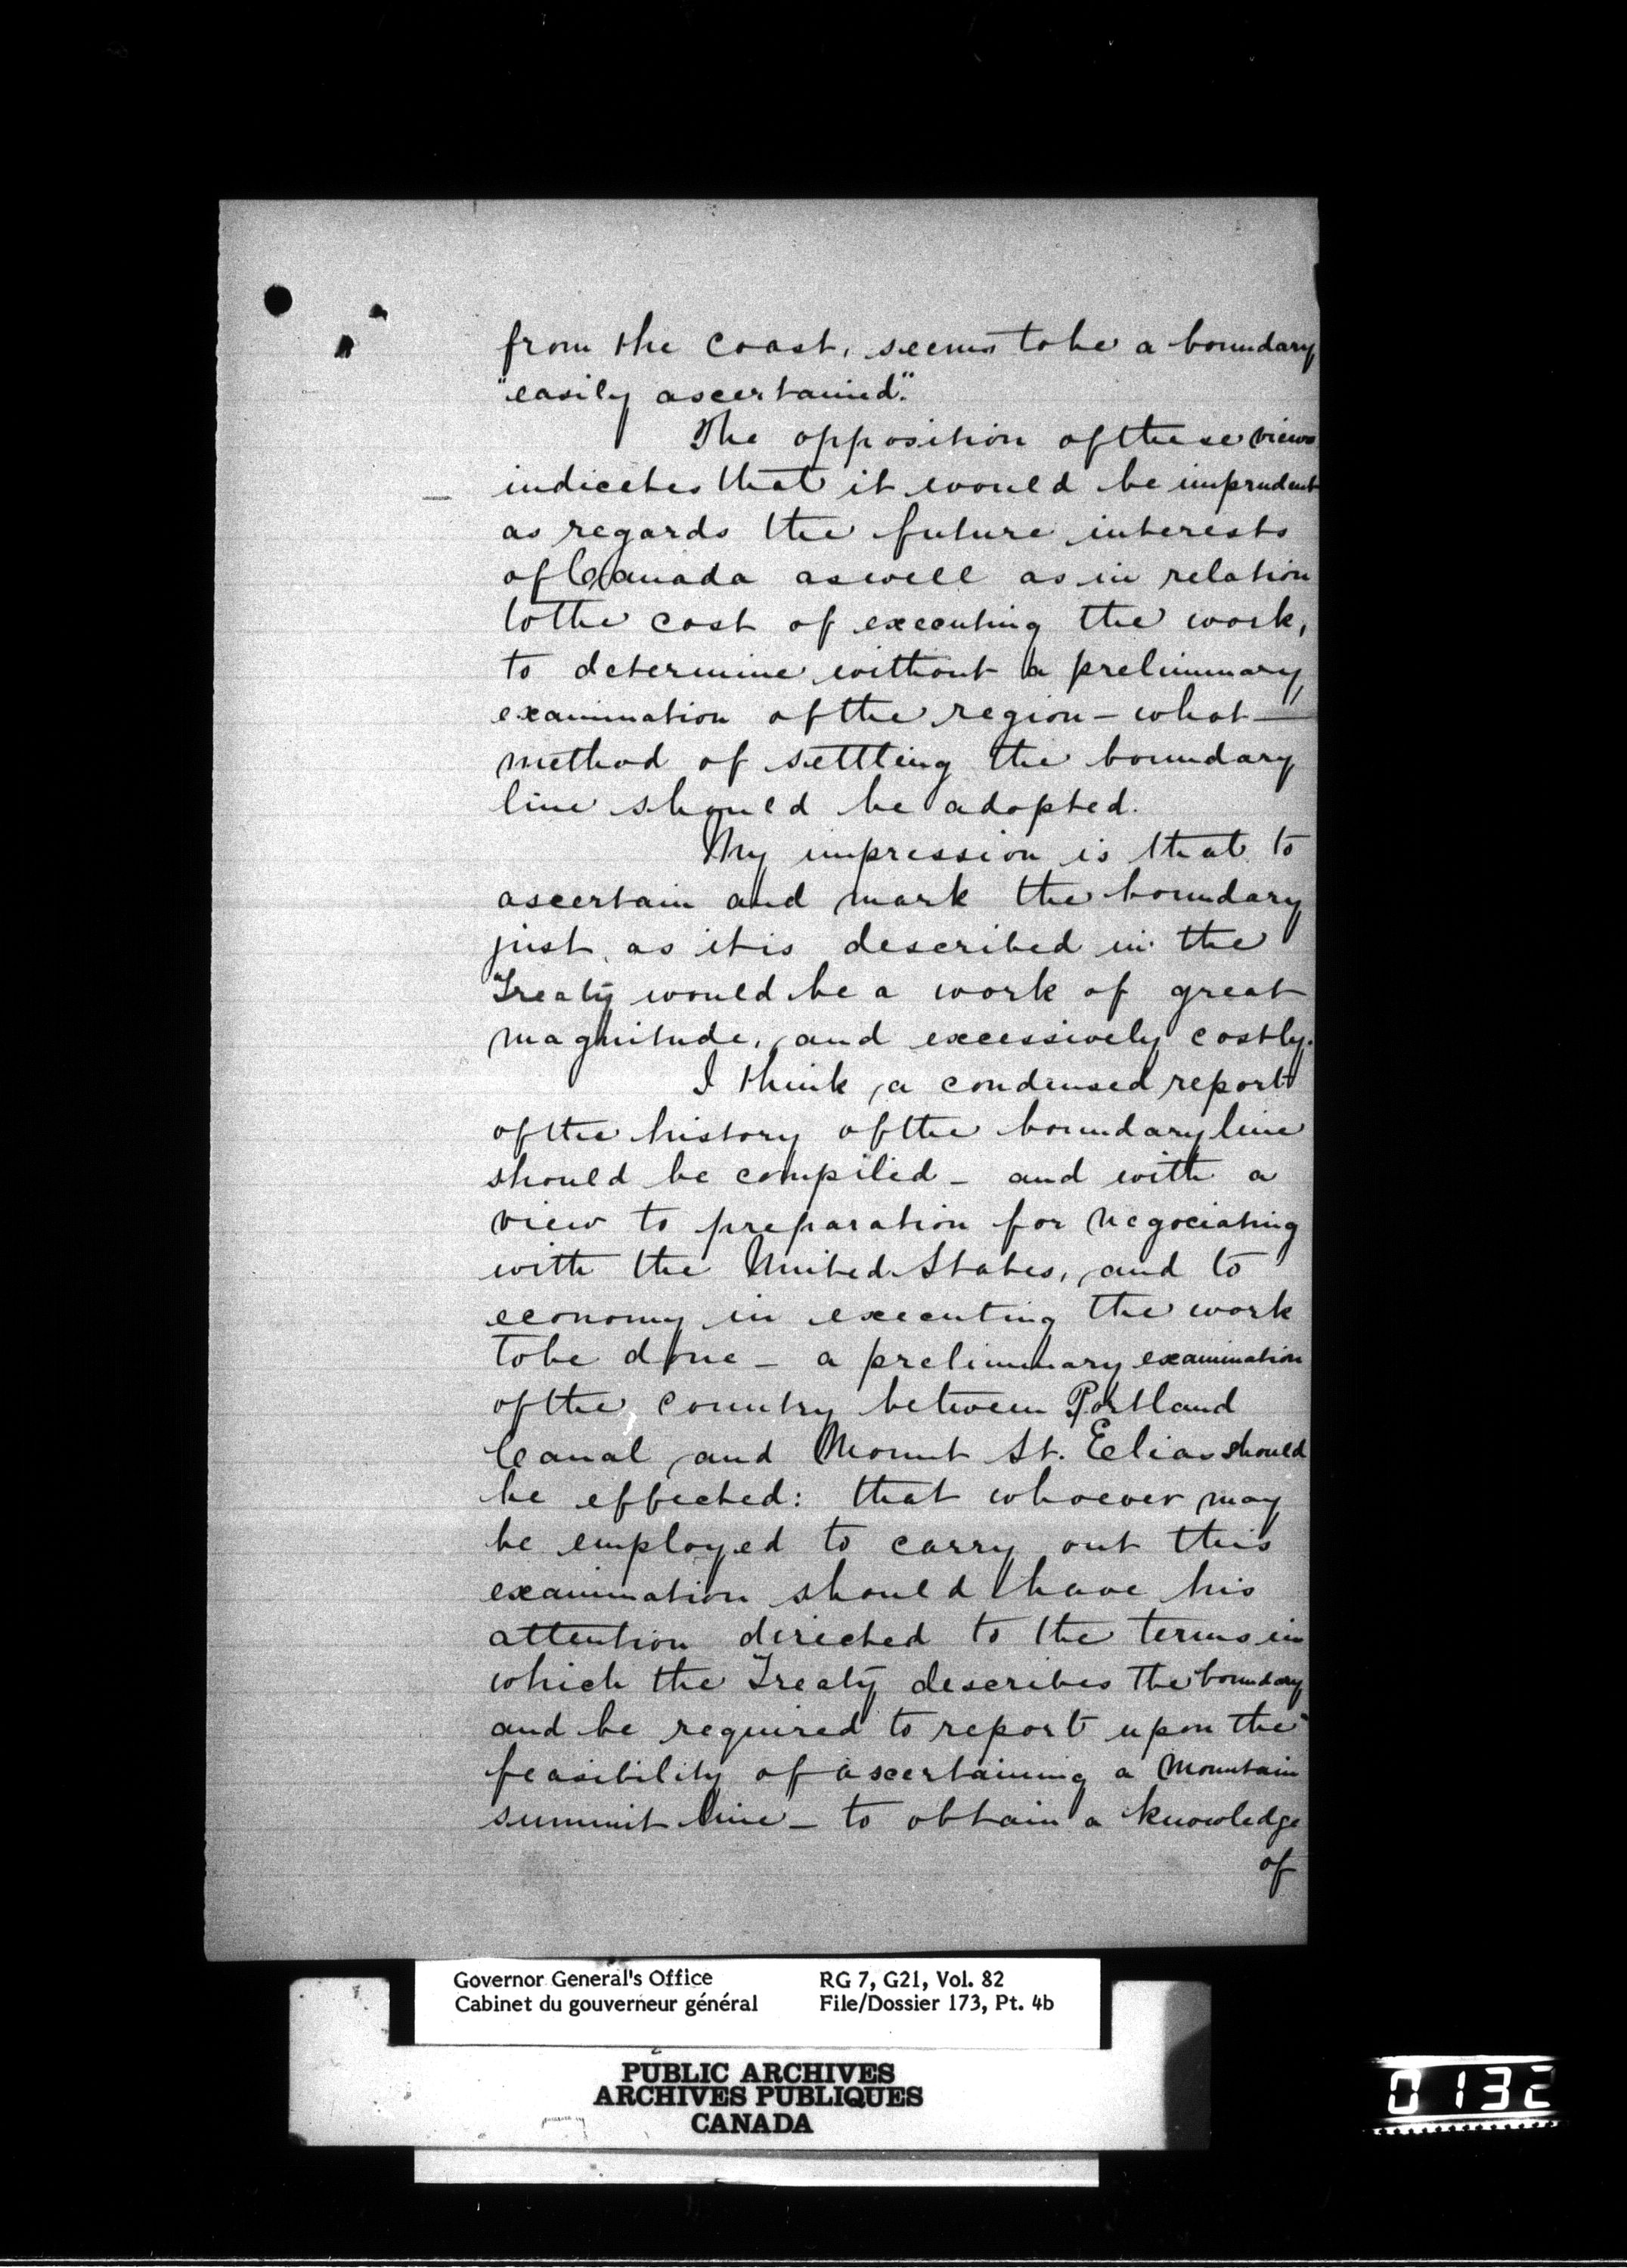 from the coast, seems to be a boundary
"easily ascertained."
The opposition of these views
indicates that it would be imprudent
as regards the future interests
of Canada as well as in relation
to the cost of executing the work,
to determine without a preliminary
examination of the region - what
method of settling the boundary
line should be adopted.
My impression is that to
ascertain and mark the boundary
just as it is described in the
Treaty would be a work of great
magnitude, and excessively costly.
I think a condensed report
of the history of the boundary line
should be compiled - and with a
view to preparation for negociating
with the United States, and to
economy in executing the work
to be done - a preliminary examination
of the country between Portland
Canal and Mount St. Elias should
be effected: that whoever may
be employed to carry out this
examination should have his
attention directed to the terms in
which the Treaty describes the boundary
and be required to report upon the
feasibility of ascertaining a Mountain
summit line - to obtain a knowledge
of
Governor General's Office RG 7, G21, Vol. 82
Cabinet du gouverneur général File/Dossier 173, Pt. 4b
PUBLIC ARCHIVES
ARCHIVES PUBLIQUES
CANADA
0132